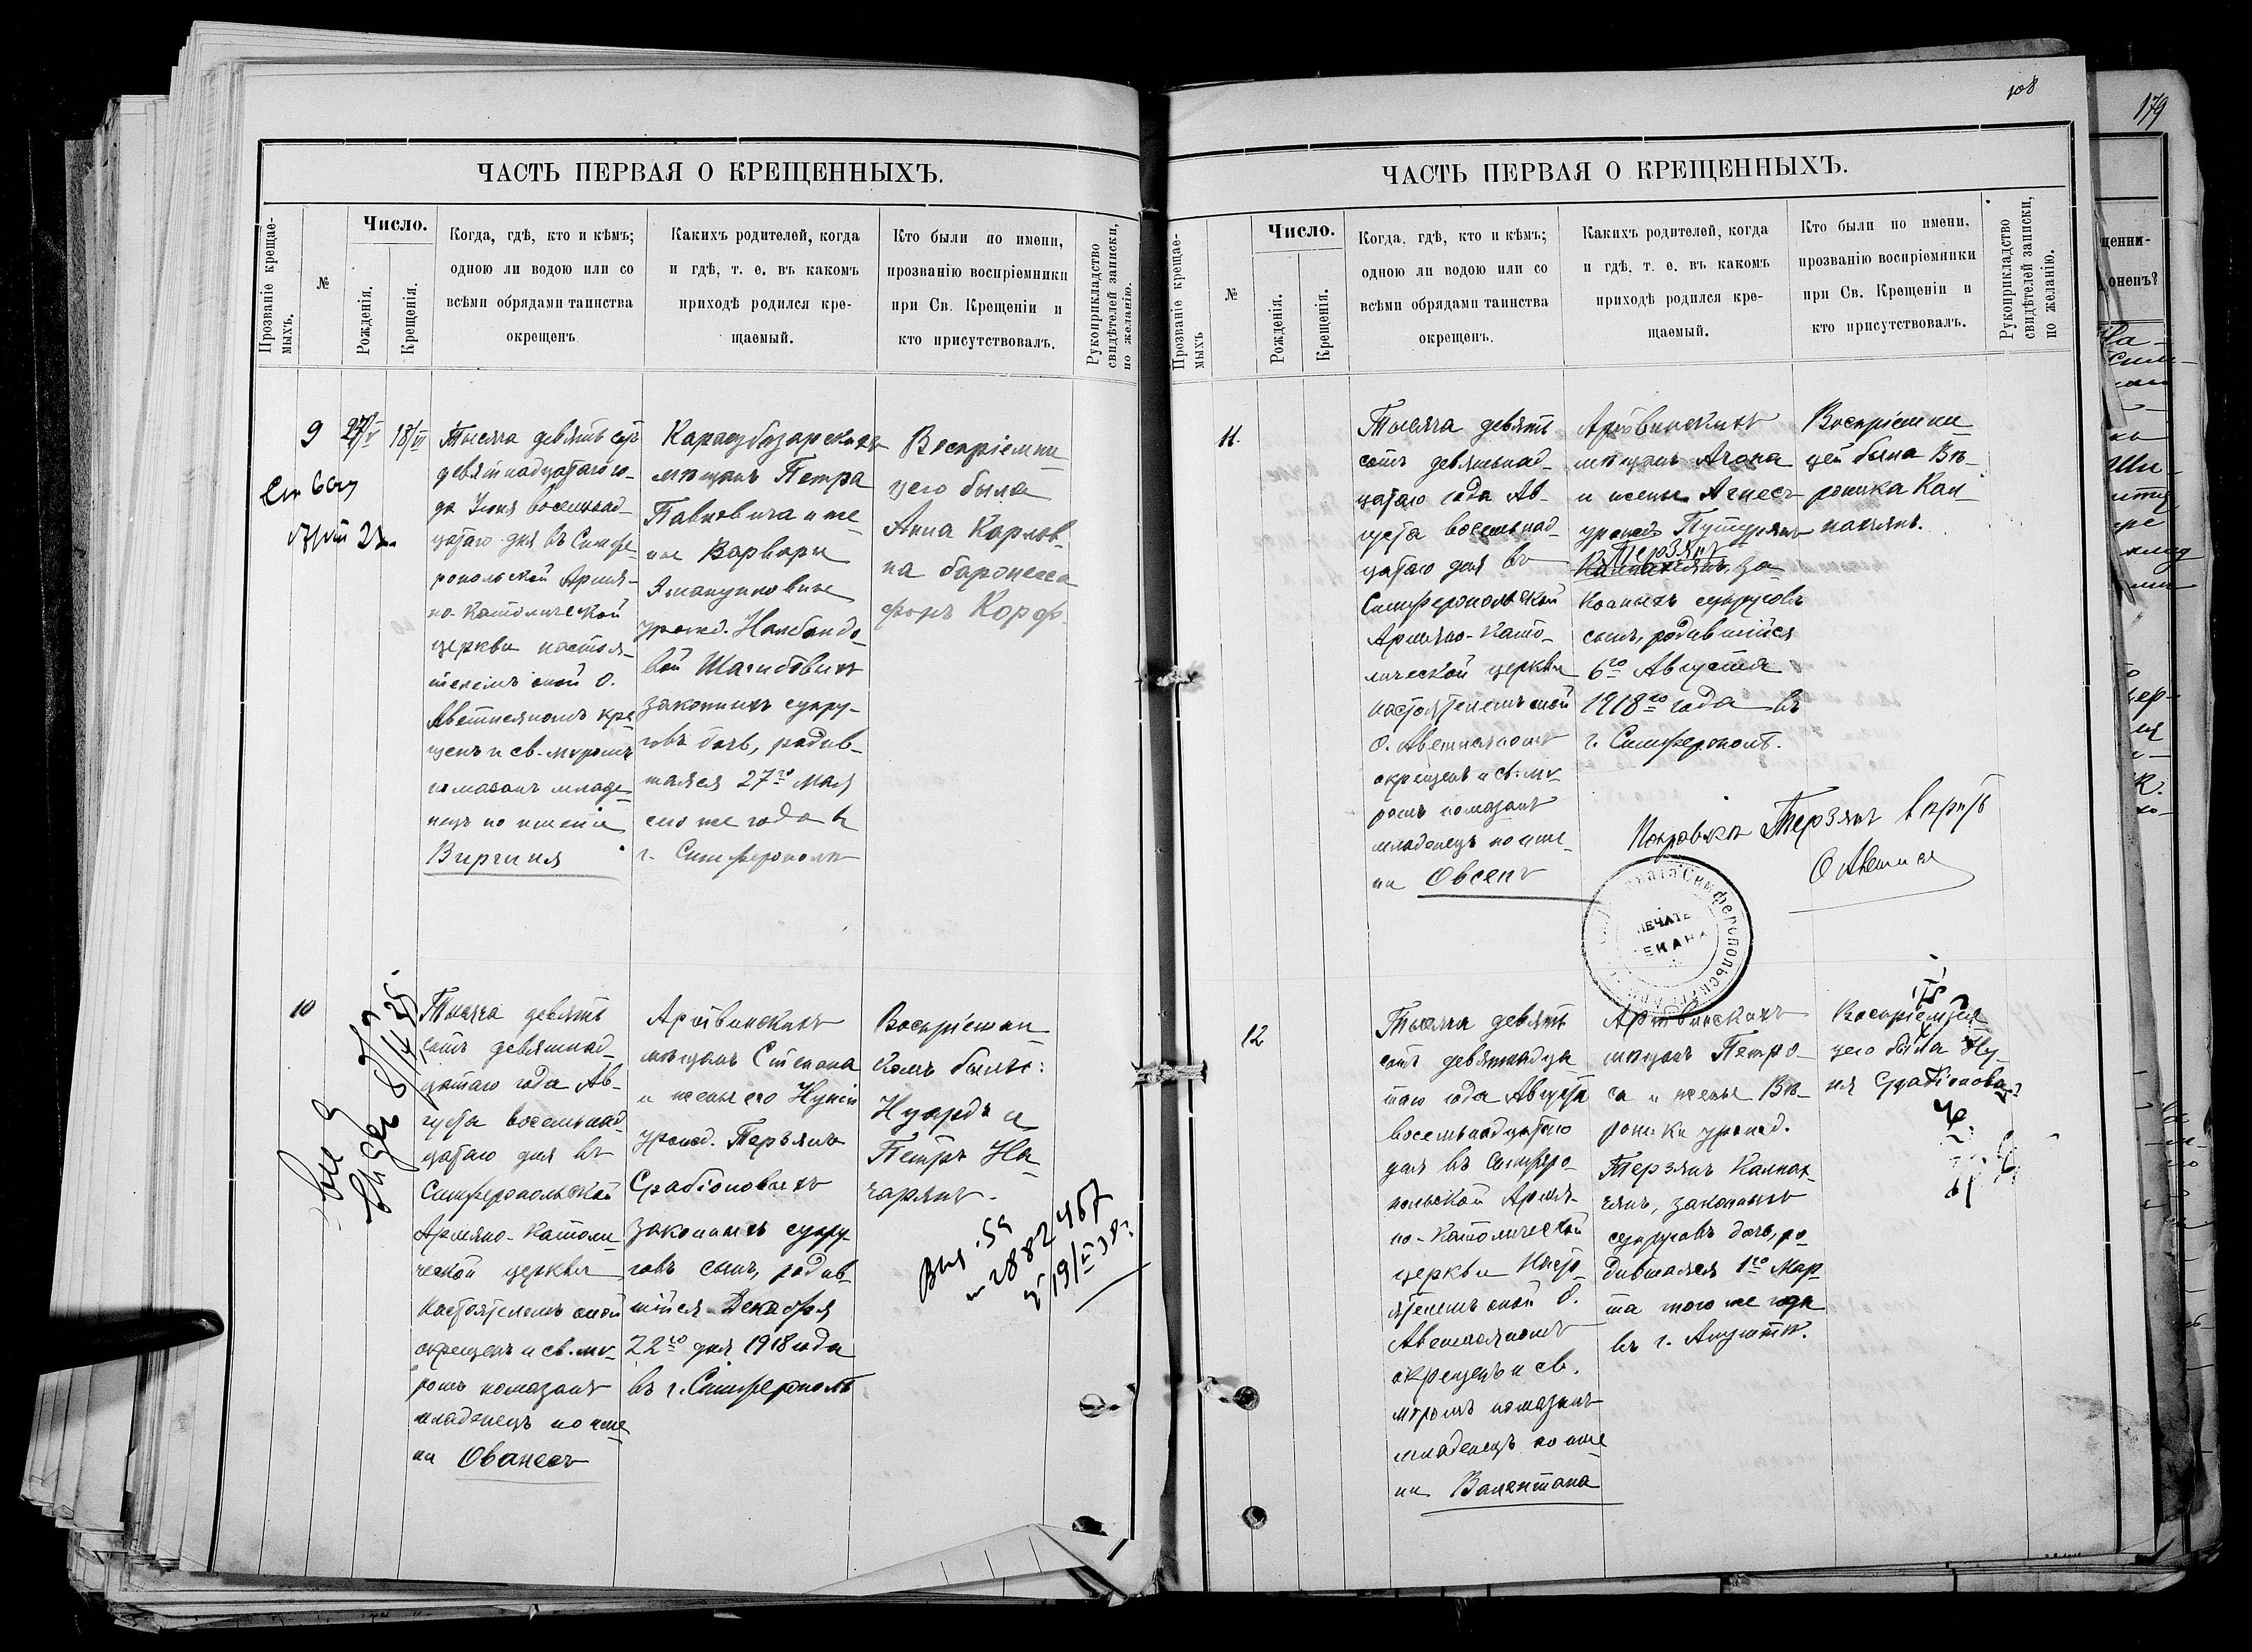 ЧАСТЬ ПЕРВАЯ О КРЕЩЕННЫХЪ.
Прозваніе крещае-
мыхъ.
№
Число.
Рожденія.
Крещенія.
Когда, гдѣ, кто и кѣмъ;
одною ли водою или со
всѣми обрядами таинства
окрещенъ.
Какихъ родителей, когда
и гдѣ, т. е. въ какомъ
приходѣ родился кре-
щаемый.
Кто были по имени,
прозванію воспріемники
при Св. Крещеніи и
кто присутствовалъ.
Рукоприкладство
свидѣтелей записки,
по желанію.
9
27/V
18/VI
Тысяча девятьсотъ
девятнадцатаго го-
да Іюня восемнад-
цатаго дня въ Симфе-
ропольской Армя-
но-Католической
церкви настоя-
телемъ оной О.
Аветисяномъ кре-
щенъ и св. мѵромъ
помазанъ младе-
нецъ по имени
Виргинія
Карасубазарскихъ
мѣщанъ Петра
Павловича и же-
ны Варвары
урожд. Налбандо-
вой
законныхъ супру-
говъ дочь, родив-
шаяся 27го Мая
сего же года въ
г. Симферополѣ
Воспріемни-
цею была
Анна Карлов-
на баронесса
фонъ Корфъ.
10
Тысяча девять
сотъ девятнад-
цатаго года Ав-
густа восемнад-
цатаго дня въ
Симферопольской
Армяно-Католи-
ческой церкви
Настоятелемъ оной
окрещенъ и св. мѵ-
ромъ помазанъ
младенецъ по име
ни Ованесъ
Артвинскихъ
мѣщанъ Степана
и жены его Нуніи
урожд. Терзянъ
Срабіоновыхъ
законныхъ супру-
говъ сынъ, родив-
шійся Декабря
22го дня 1918 года
въ г. Симферополѣ
Воспріемни-
комъ были:
и
Петръ На-
чарянъ.
2882
108
ЧАСТЬ ПЕРВАЯ О КРЕЩЕННЫХЪ.
Прозваніе крещае-
мыхъ
№
Число.
Рожденія.
Крещенія.
Когда, гдѣ, кто и кѣмъ;
одною ли водою или со
всѣми обрядами таинства
окрещенъ.
Какихъ родителей, когда
и гдѣ, т. е. въ какомъ
приходѣ родился кре-
щаемый.
Кто были по имени,
прозванію воспріемники
при Св. Крещеніи и
кто присутствовалъ.
Рукоприкладство
свидѣтелей записки,
по желанію.
11.
Тысяча девять
сотъ девятнад-
цатаго года Ав-
густа восемнад-
цатаго дня въ
Симферопольской
Армяно-Като-
лической церкви
настоятелемъ оной
О. Аветисяномъ
окрещенъ и св. мѵ-
ромъ помазанъ
младенецъ по име-
ни Овсепъ
Артвинскихъ
мѣщанъ
и жены Агнесъ
урожд.
Терзянъ
за-
конныхъ супруговъ
сынъ, родившійся
6го Августа
1918го года въ
г. Симферополѣ.
Воспріемни-
цей была Вѣ-
роника Кал-
пакчянъ.
Терзянъ вѣрить
О Аветися
Симферопольск
ПЕЧАТЬ
ДЕКАНА
12
Тысяча девять
сотъ девятнадца
таго года Августа
восемнадцатаго
дня въ Симферо-
польской Армя-
но-Католической
церкви Насто-
ятелемъ оной О.
Аветисяномъ
окрещенъ и св.
мѵромъ помазанъ
младенецъ по име
ни Валентина
Артвинскихъ
мѣщанъ Петро-
са и жены Вѣ-
роники урожд.
Терзянъ Калпак-
чянъ, законныхъ
супруговъ дочь, ро-
дившаяся 1го Мар-
та того же года
въ г. Алуштѣ.
Воспріемни
цею была Ну-
ня Срабіонова
179